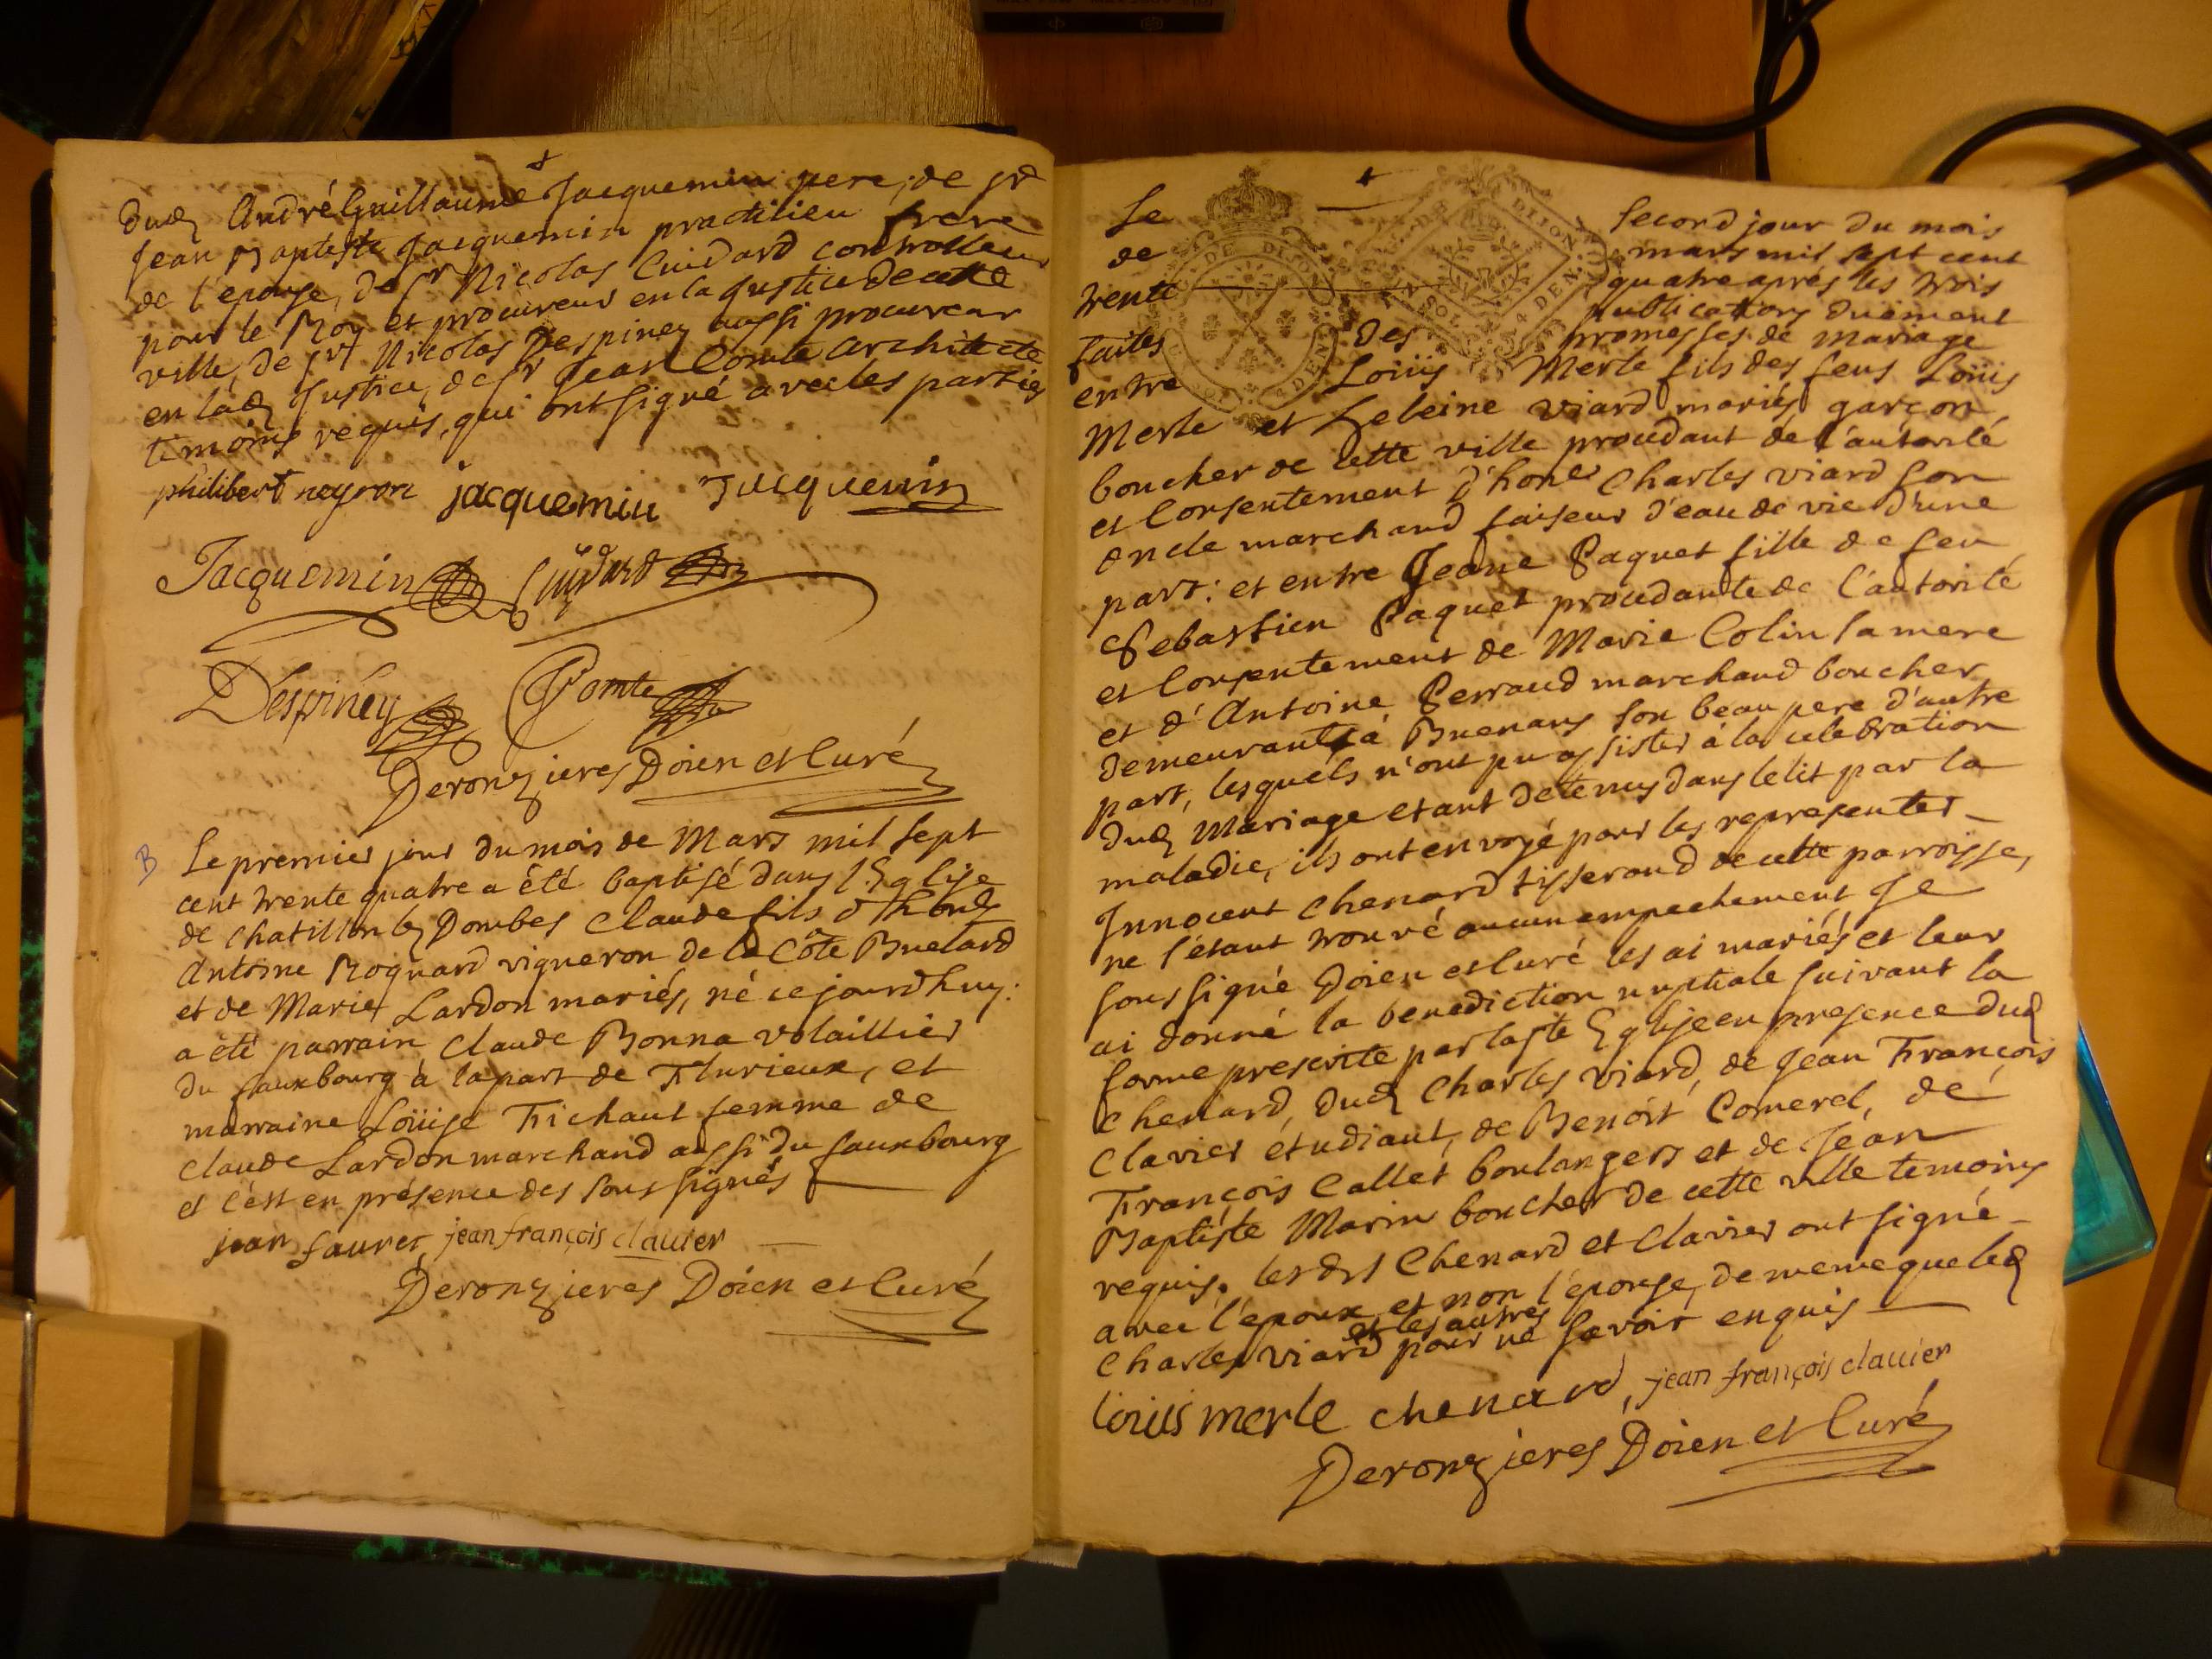 dud André Guillaume Jacquemin pere, de sr
Jean Baptiste Jacquemin practitien frere
de l'epouse, de sr Nicolas Cuidard controlleur
pour le Roy et procureur en la Justice de cette
ville, de sr Nicolas Despiney aussi procureur
en lad Justice, de sr Jean Comte architecte
temoins requis, qui ont signé avec les parties
philibert neyron jacquemin Jacquemin
Jacquemin Cuidard
Despiney Comte
Deronzieres Doien et Curé
B
Le premier jour du mois de Mars mil sept
cent trente quatre a été baptisé dans l'Eglise
de Chatillon les Dombes Claude fils d'hon
Antoine Roguard vigneron de la Côte Buelard
et de Marie Lardon mariés, né ce jourdhuy:
a été parrain Claude Bonna volaillier
du fauxbourg à la part de Flurieux, et
marraine Loüise Trichaut femme de
Claude Lardon marchand aussi du fauxbourg
et c'est en présence des sous signés
jean faurer, jean françois clavier
Deronzieres Doien et Curé
Le second jour du mois
de mars mil sept cent
trente quatre aprés les trois
publications duëment
faites des promesses de mariage
entre Loüis Merle fils des feus Loüis
Merle et Heleine viard mariés garçon
boucher de cette ville procedant de l'autorité
et Consentement d'hone Charles viard son
oncle marchand faiseur d'eau de vie d'une
part: et entre Jeane Paquet fille de feu
Sebastien Paquet procedante de l'autorité
et Consentement de Marie Colin sa mere
et d'Antoine Perraud marchand boucher
demeurants à Buenans son beau pere d'autre
part, lesquels n'ont pu assister à la celebration
dud Mariage etant detenus dans le lit par la
maladie, ils ont envoyé pour les representer
Innocent Chenard tisserand de cette parroisse,
ne s'étant trouvé aucun empechement Je
sous signé Doien et Curé les ai mariés et leur
ai donné la benediction nuptiale suivant la
forme prescrite par la ste Eglise en presence dud
Chenard, dud Charles viard, de Jean François
Clavier étudiant, de Benoit Comerel, de
François Callet boulangers et de Jean
Baptiste Marin boucher de cette ville temoins
requis. lesdts Chenard et Clavier ont signé
avec l'epoux et non l'epouse, de meme que led
et les autres
Charles viard pour ne savoir enquis
loiüis merle chenard, jean françois clavier
Deronzieres Doien et Curé